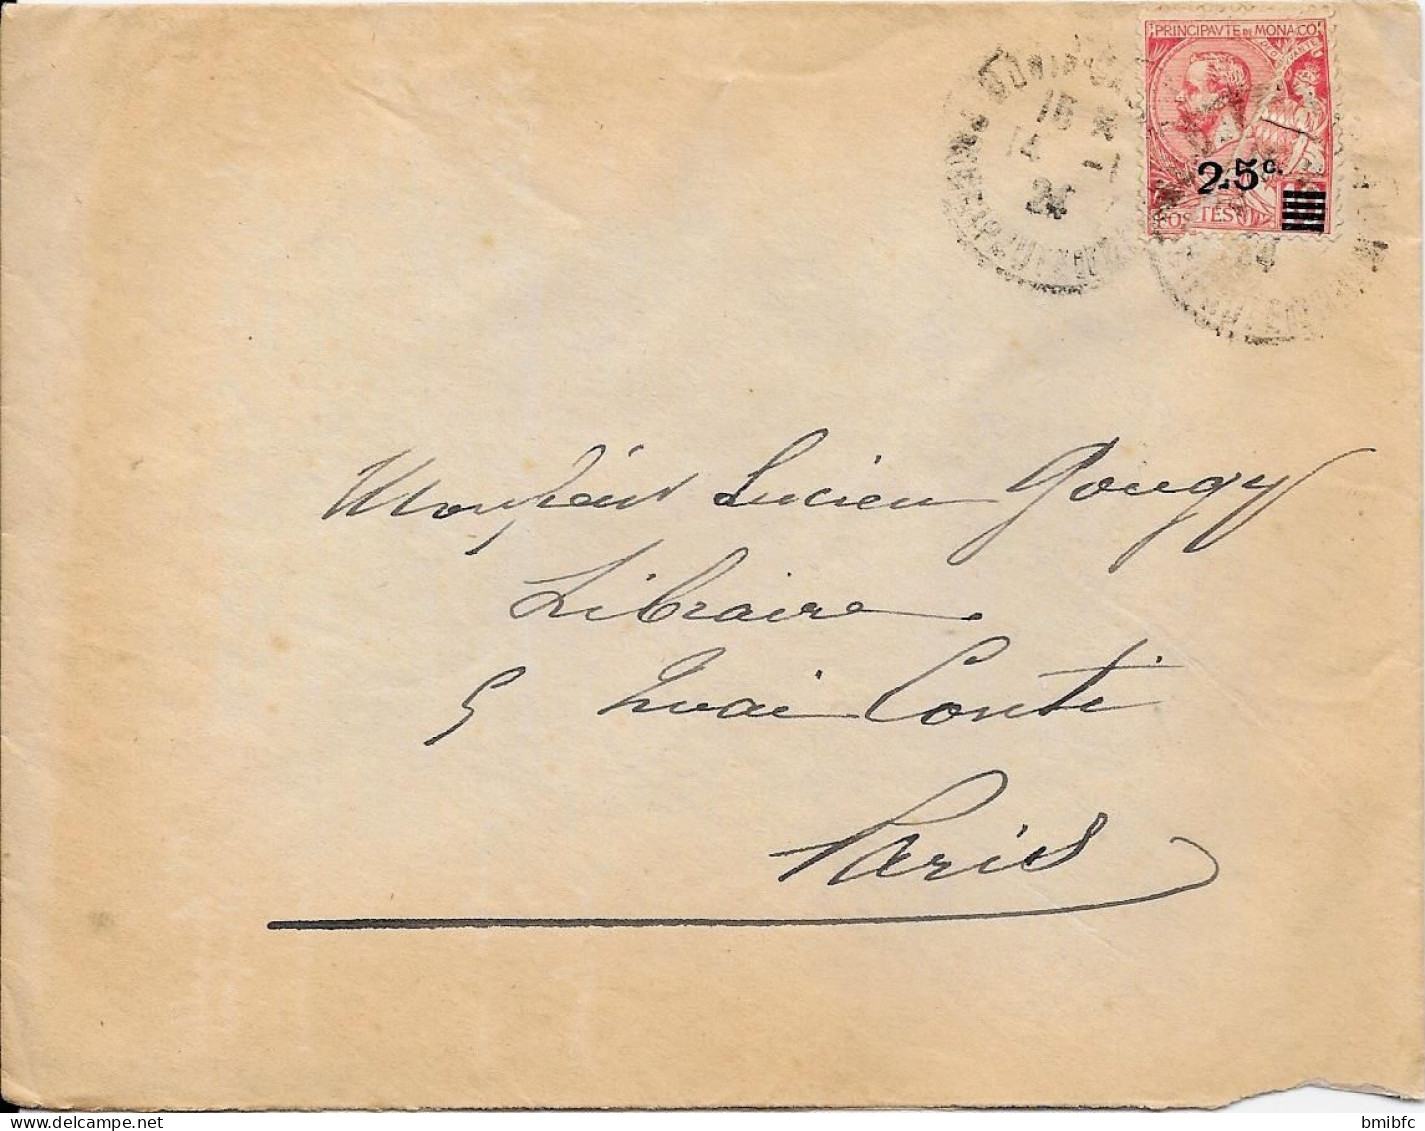 PRINCIPAVTE DE MONACO
25c.
POSTES
16
14 -1
24
Monsieur Lucien Gougy
Libraire
5 Quai Conti
Paris
delcampe.net
bmibfc